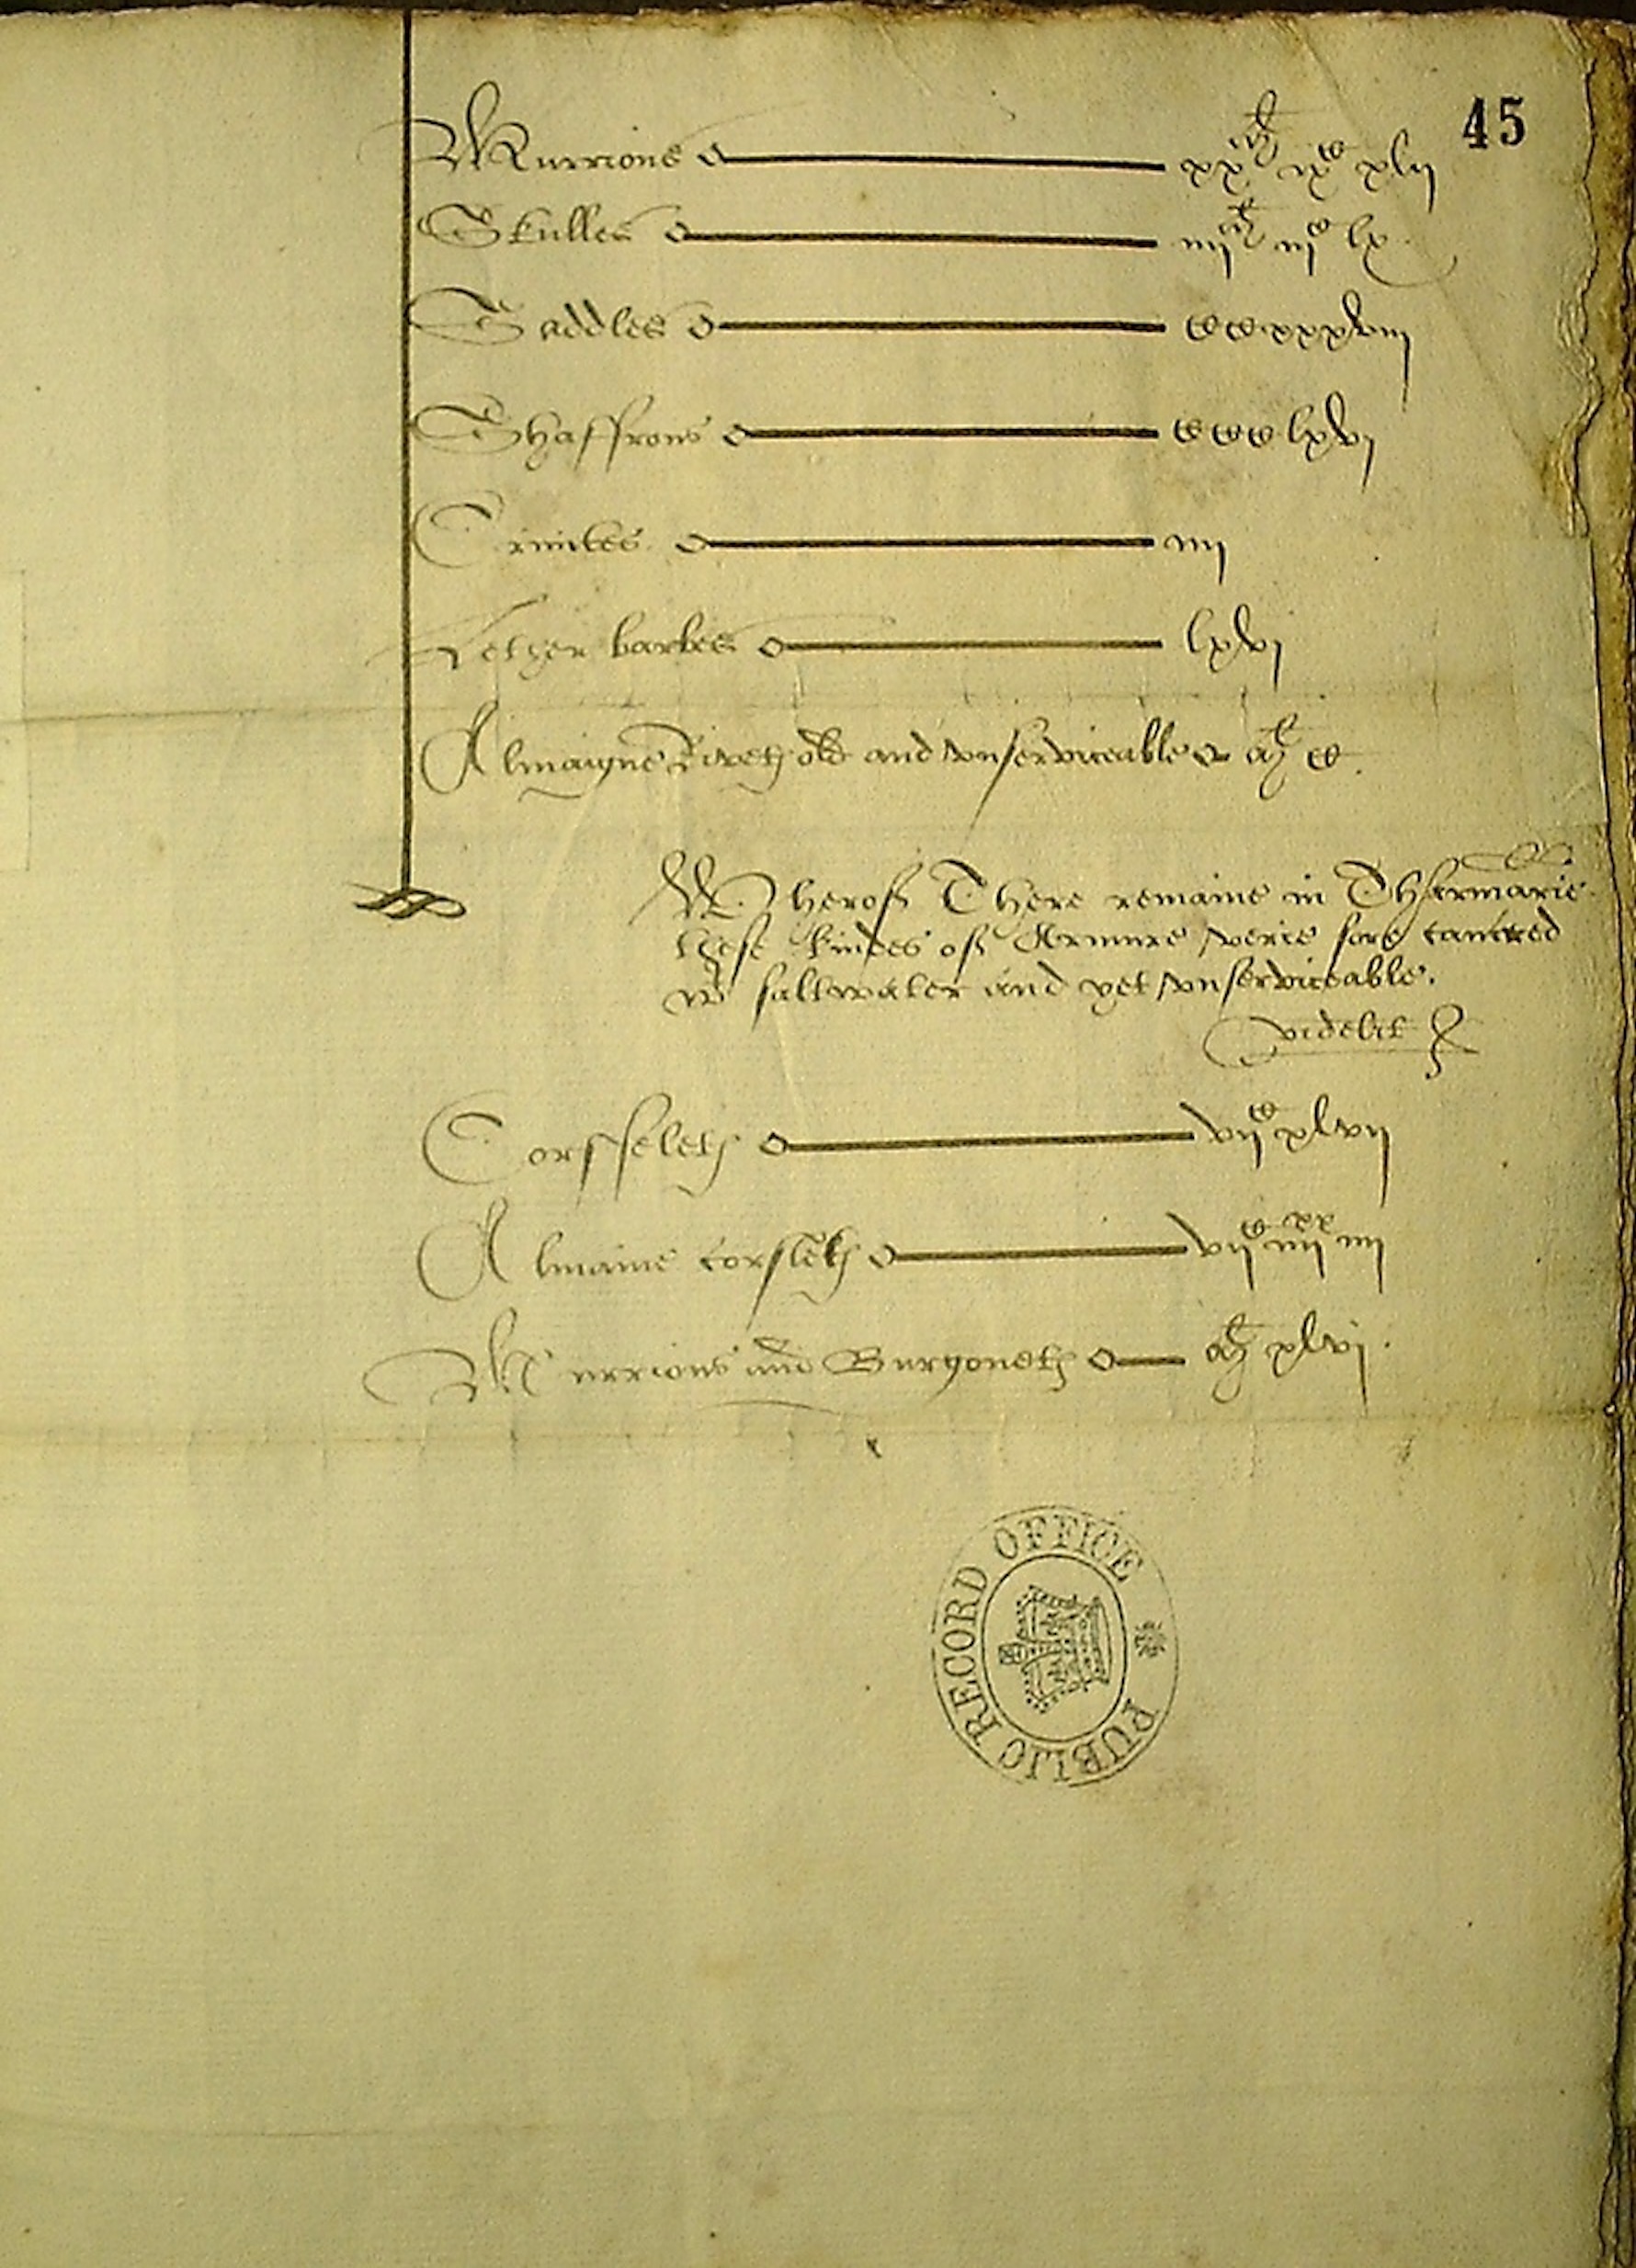 45
Murrions xx^Ml ix^c xlij
Skulles iiij^Ml iij^c lx
Saddles CCxxxviij
Shaffrons CCClxvj
Crinites iiij
Lether barbes lxvj
Almaigne Rivetℯ old and vnserviceable Ml C.
Wherof There remaine in Tharmarie
these kindes of Armure verie sore cancred
w^t saltwater and yet vnserviceable.
videlit
Corsseletℯ vij^c xlvij
Almaine corsletℯ vij^c iiij^xx iiij
Murrions and Burgonetℯ Ml xlvj.
PUBLIC RECORD OFFICE